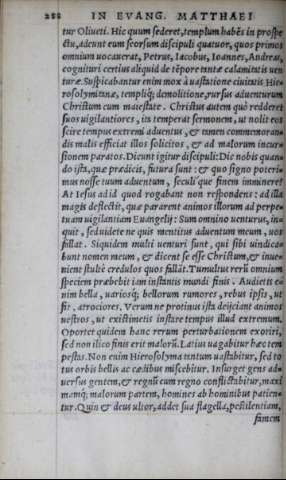 288 IN EVANG. MATTHAEI
tur Oliueti. Hic quum sederet, templum habēs in prospe
ctu, adeunt eum seorsum discipuli quatuor, quos primos
omnium uocauerat, Petrus, Iacobus, Ioannes, Andreas,
cognituri certius aliquid de tēpore tantæ calamitatis uen
turæ. Suspicabantur enim mox à uastatione ciuitatis Hie-
rosolymitanæ, templiq́; demolitione, rursus aduenturum
Christum cum maiestate. Christus autem quò redderet
suos uigilantiores, ita temperat sermonem, ut nolit eos
scire tempus extremi aduentus, & tamen commemoran-
dis malis efficiat illos solicitos, & ad malorum incur-
sionem paratos. Dicunt igitur discipuli: Dic nobis quan-
do ista, quæ prædicis, futura sunt: & quo signo poteri-
mus nosse tuum aduentum, seculi que finem imminere?
At Iesus adid quod rogabant non respondens: ad illa
magis deflectit, quæ pararent animos illorum ad perpe-
tuam uigilantiam Euangelij: Sum omnino uenturus, in-
quit, seduidete ne quis mentitus aduentum meum, uos
fallat. Siquidem multi uenturi sunt, qui sibi uindica-
bunt nomen meum, & dicent se esse Christum, & inue-
nient stultè credulos quos fallāt. Tumultus rerū omnium
speciem præbebit iam instantis mundi finis. Audietis e-
nim bella, uariosq́; bellorum rumores, rebus ipsis, ut
fit, atrociores. Verum ne protinus ista deijciant animos
uestros, ut existimetis instare tempus illud extremum.
Oportet quidem hanc rerum perturbationem exoriri,
sed non ilico finis erit malorū. Latius uagabitur hæc tem
pestas. Non enim Hierosolyma tantum uastabitur, sed to
tus orbis bellis ac cædibus miscebitur. Insurget gens ad-
uersus gentem, & regnū cum regno conflictabitur, maxi
mamq́; malorum partem, homines ab hominibus patien-
tur. Quin & deus ultor, addet sua flagella, pestilentiam,
famem